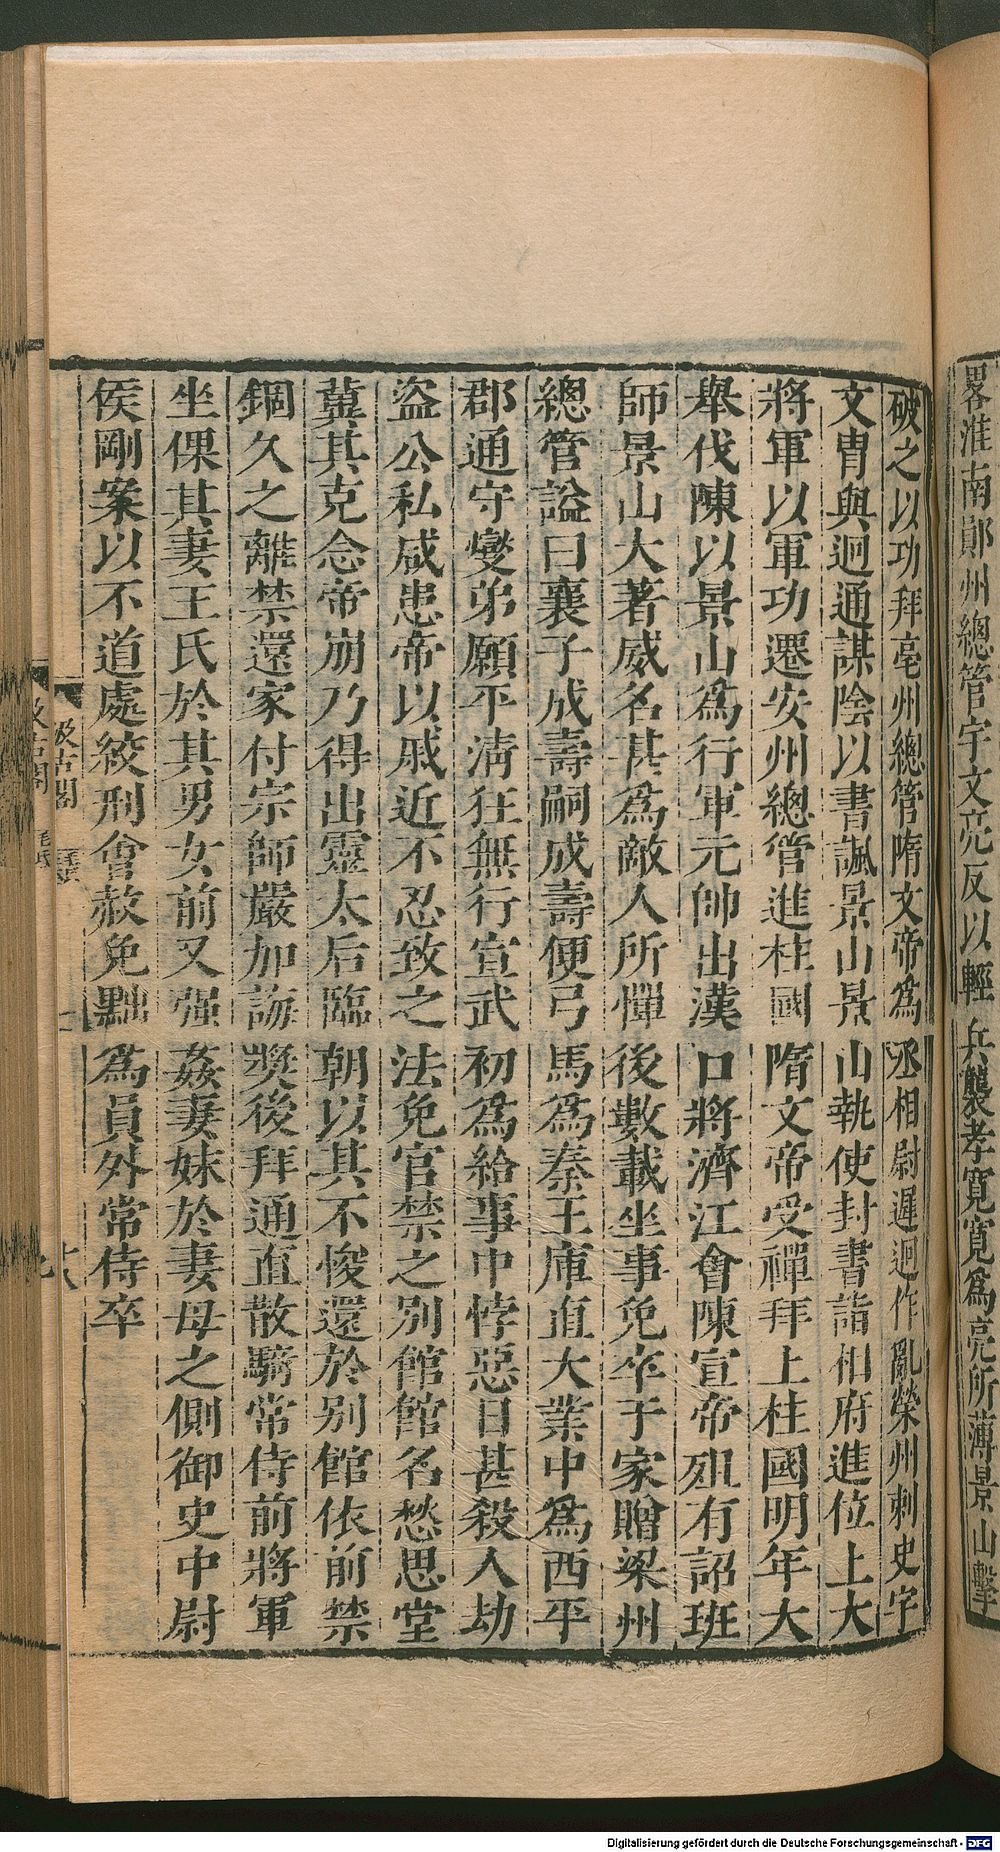 畧淮南鄖州總管宇文亮反以輕兵襲孝寬寬為亮所薄景山擊
破之以功拜亳州總管隋文帝為丞相尉遲迥作亂滎州刺史宇
文胄與迥通謀陰以書諷景山景山執使封書詣相府進位上大
將軍以軍功遷安州總管進柱國隋文帝受禪拜上柱國明年大
舉伐陳以景山為行軍元帥出漢口將濟江會陳宣帝殂有詔班
師景山大著威名甚為敵人所憚後數載坐事免卒于家贈梁州
總管謚曰襄子成壽嗣成壽便弓馬為秦王庫直大業中為西平
郡通守燮弟願平淸狂無行宣武初為給事中悖惡日甚殺人劫
盜公私咸患帝以戚近不忍致之法免官禁之別館館名愁思堂
冀其克念帝崩乃得出靈太后臨朝以其不悛還於別館依前禁
錮久之離禁還家付宗師嚴加誨奬後拜通直散騎常侍前將軍
坐倮其妻王氏於其男女前又强姦妻妹於妻母之側御史中尉
侯剛案以不道處絞刑會赦免黜為員外常侍卒
汲古閣
毛氏
Digitalisierung gefördert durch die Deutsche Forschungsgemeinschaft - DFG